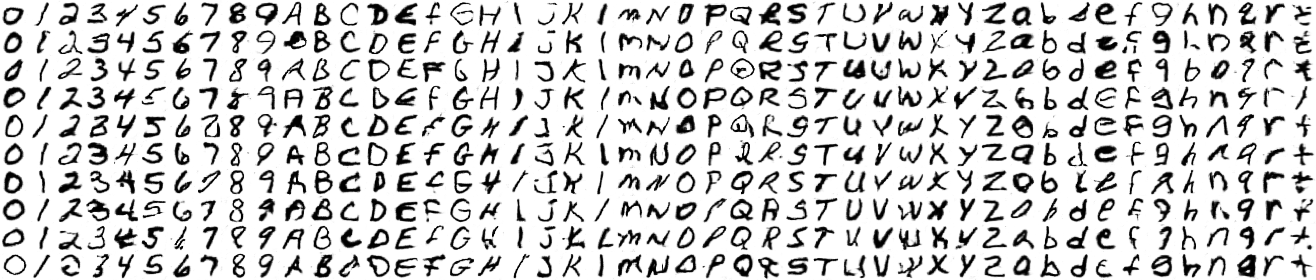 0 1 2 3 4 5 6 7 8 9 A B C D E F G H I J K l m N O P Q R S T U V W X Y Z a b d e f g h n q r t
0 1 2 3 4 5 6 7 8 9 A B C D E F G H I J K l m N O P Q R S T U V W X Y Z a b d e f g h n q r t
0 1 2 3 4 5 6 7 8 9 A B C D E F G H I J K l m N O P Q R S T U V W X Y Z a b d e f g h n q r t
0 1 2 3 4 5 6 7 8 9 A B C D E F G H I J K l m N O P Q R S T U V W X Y Z a b d e f g h n q r t
0 1 2 3 4 5 6 7 8 9 A B C D E F G H I J K l m N O P Q R S T U V W X Y Z a b d e f g h n q r t
0 1 2 3 4 5 6 7 8 9 A B C D E F G H I J K l m N O P Q R S T U V W X Y Z a b d e f g h n q r t
0 1 2 3 4 5 6 7 8 9 A B C D E F G H I J K l m N O P Q R S T U V W X Y Z a b d e f g h n q r t
0 1 2 3 4 5 6 7 8 9 A B C D E F G H I J K l m N O P Q R S T U V W X Y Z a b d e f g h n q r t
0 1 2 3 4 5 6 7 8 9 A B C D E F G H I J K L m N O P Q R S T U V W X Y Z a b d e f g h n q r t
0 1 2 3 4 5 6 7 8 9 A B C D E F G H I J K l m N O P Q R S T U V W X Y Z a b d e f g h n q r t